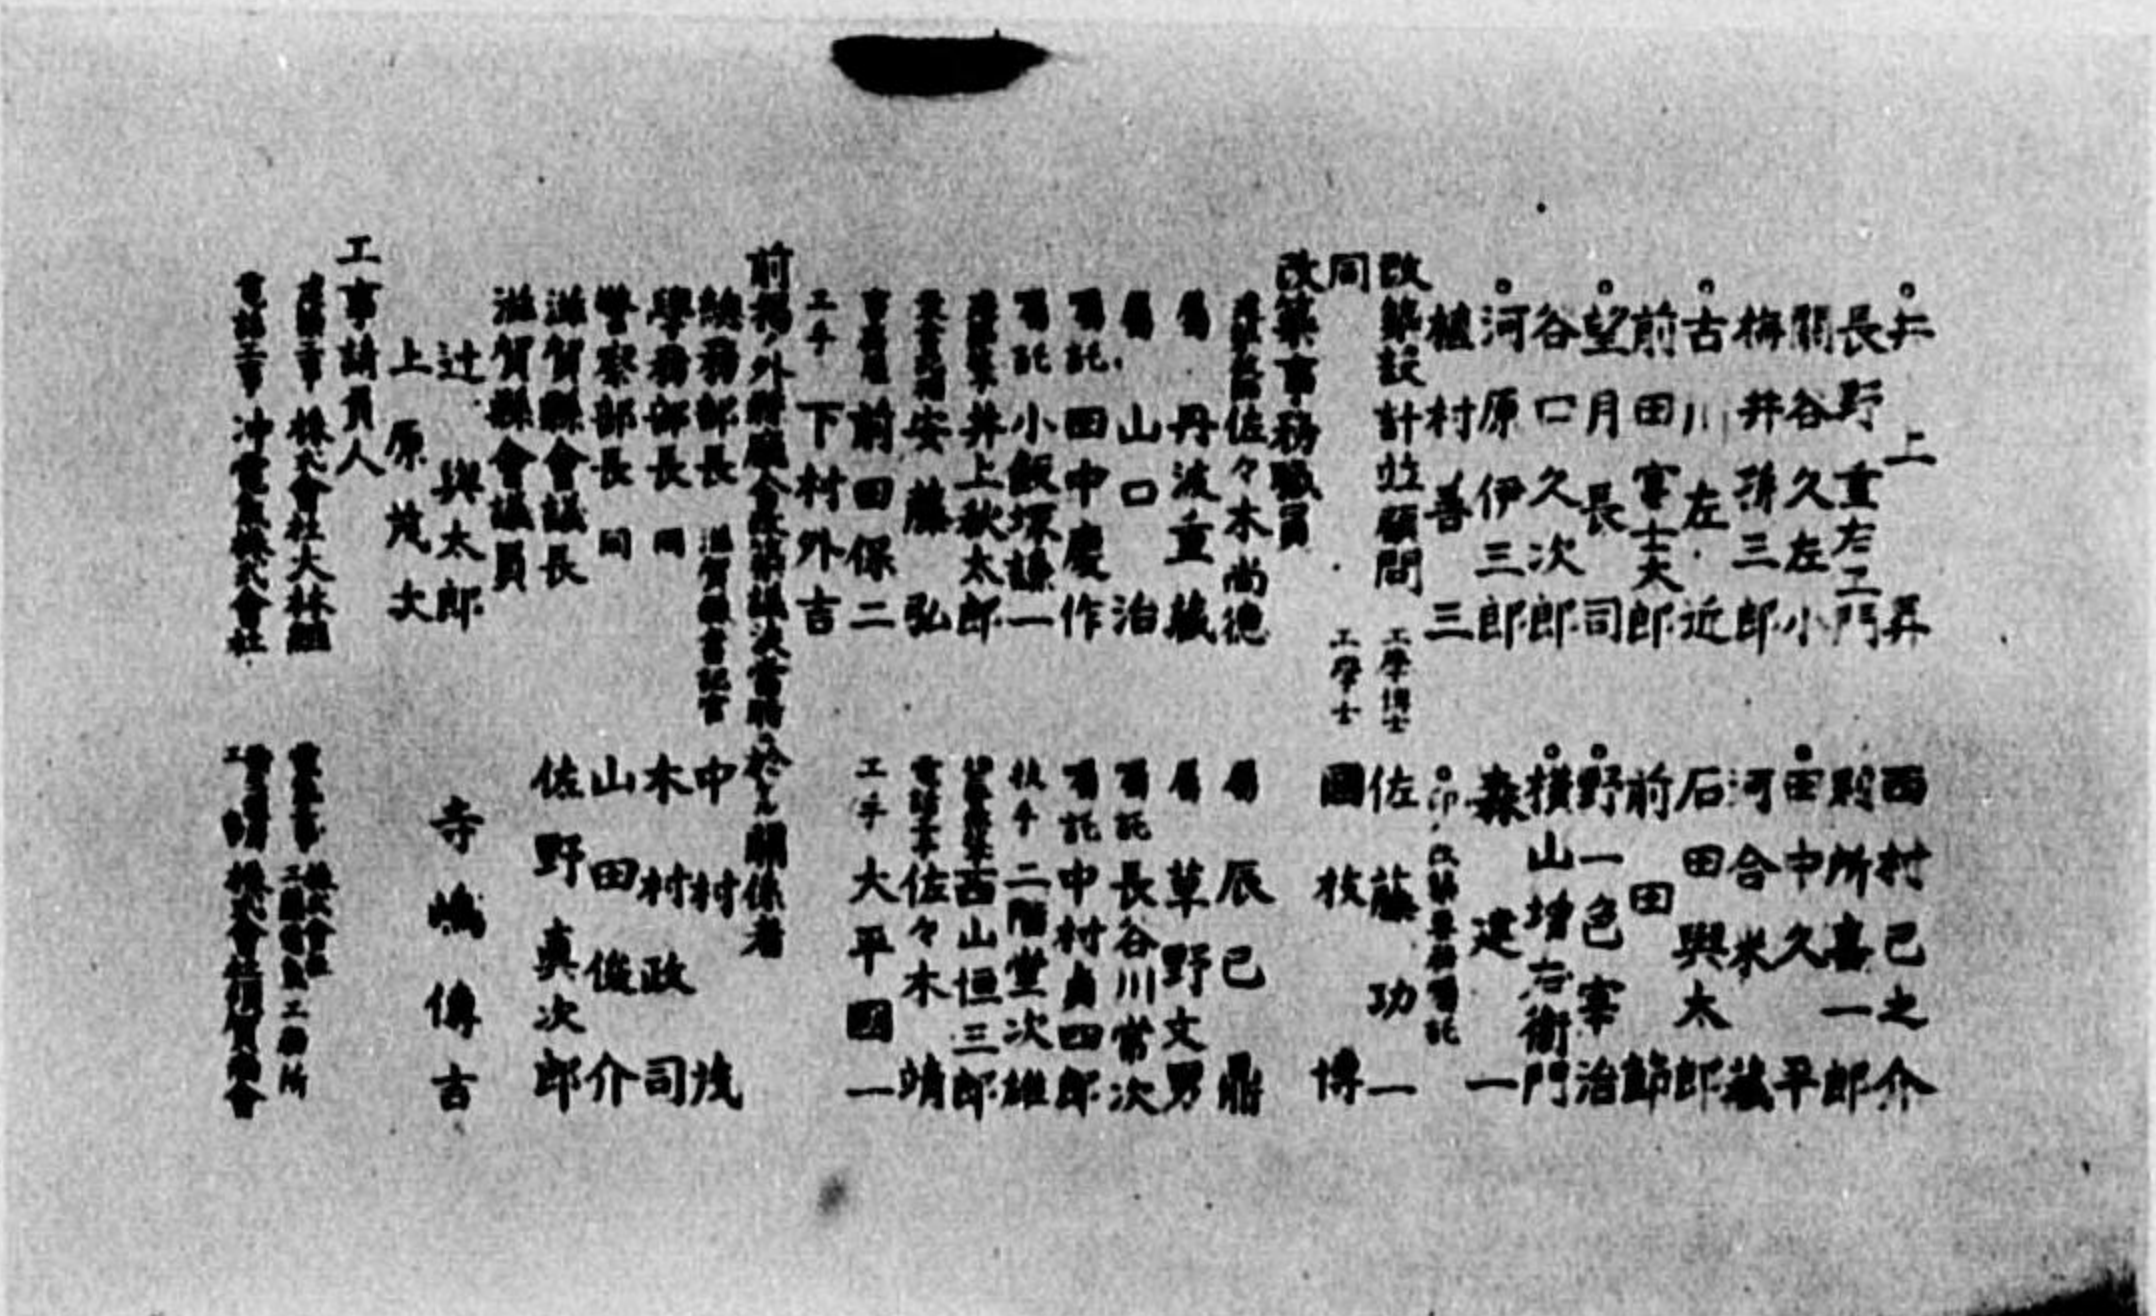 °井上昇
長野重右エ門
關谷久左小
梅井弥三郎
°古川左近
前田富士太郎
°望月長司
谷口久次郎
°河原伊三郎
植村善三
西村巳之介
別所喜一郎
°田中久平
河合米藏
石田與太郎
前田節
°野一色宰治
°横山増右衛門
森建一
°印ハ改築事務嘱託
改築設計竝顧問 工學博士 佐藤功一
同 工學士 國枝博
改築事務職員
佐々木尚德
屬 丹波重藏
屬 山口治
嘱託 田中慶作
嘱託 小飯塚謙一
井上秋太郎
安藤弘
前田保二
工手 下村外吉
屬 辰巳鼎
屬 草野文男
嘱託 長谷川常次
嘱託 中村貞四郎
技手 二階堂次雄
西山恒三郎
佐々木靖
工手 大平國一
前揭ノ外縣廳舎改築議決當時ニ於ケル關係者
總務部長 滋賀縣書記官 中村茂
學務部長 同 木村政司
警察部長 同 山田俊介
滋賀縣會議長 佐野眞次郎
滋賀縣會議員
辻與太郎 寺嶋傳吉
上原茂次
工事請負人
株式會社大林組
電話工事 沖電氣株式會社
株式會社
工務所
株式會社須賀商會